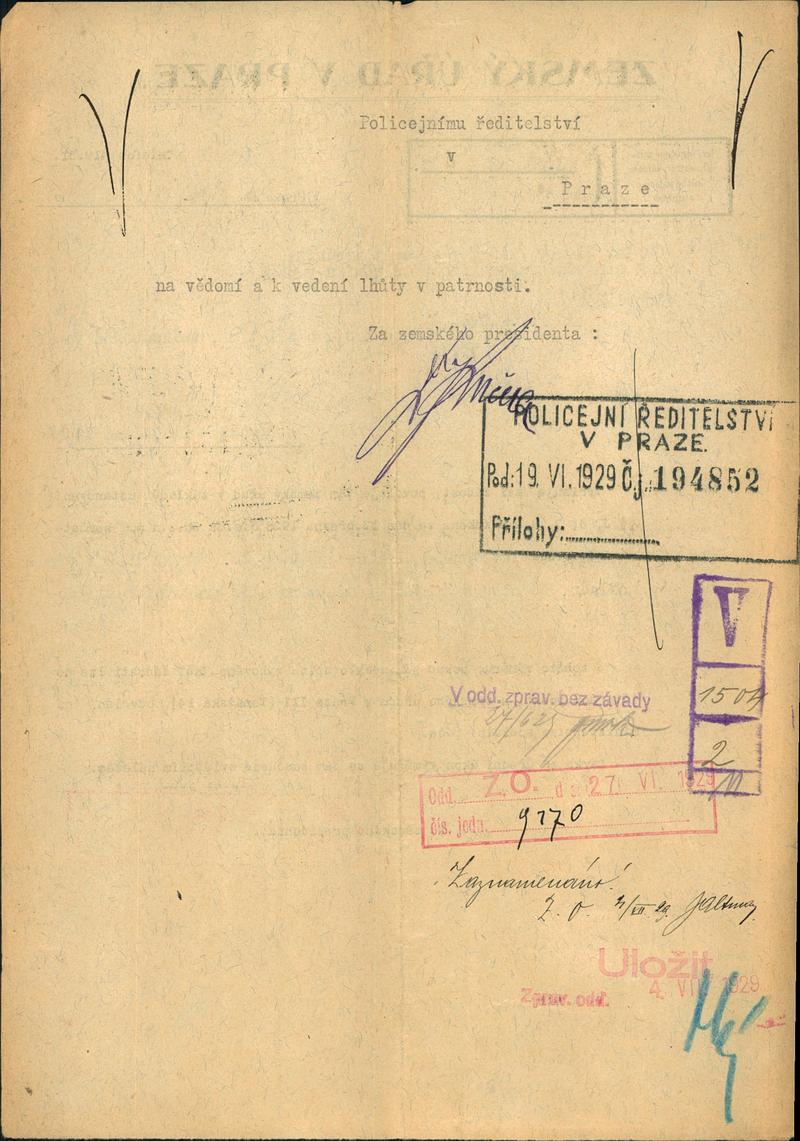 Policejnímu ředitelství
v
Praze
na vědomí a k vedení lhůty v patrnosti.
Za zemského presidenta :
POLICEJNÍ ŘEDITELSTVÍ
V PRAZE.
Pod: 19. VI. 1929 Čj. 194852
Přílohy:
V
1504
2
V odd. zprav. bez závady
Odd. Z. O. 27. VI. 1929
čís. jedn. 9170
Zaznamenáno!
Z. O.
Uložit
4. VII. 1929
Zprav. odd.